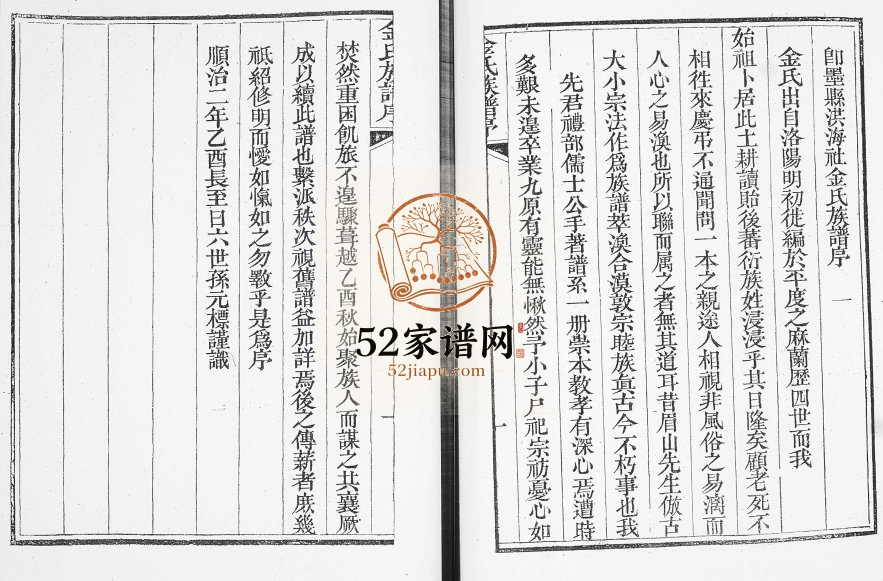 即墨縣洪海社金氏族譜序
一
金氏出自洛陽明初徙編於平度之麻蘭歷四世而我
始祖卜居此土耕讀貽後蕃衍族姓浸浸乎其日隆矣顧老死不
相徃來慶弔不通聞問一本之親途人相視非風俗之易漓而
人心之易渙也所以聯而属之者無其道耳昔眉山先生倣古
大小宗法作爲族譜萃渙合漠敦宗睦族眞古今不朽事也我
先君禮部儒士公手著譜系一册崇本教孝有深心焉遭時
多艱未遑卒業九原有靈能無愀然予小子尸祀宗祊憂心如
金氏族譜序
一
金氏族譜序
焚然重困飢旅不遑驟葺越乙酉秋始聚族人而謀之共襄厥
成以續此譜也繫派秩次視舊譜益加詳焉後之傳薪者庶幾
祇紹修明而懓如愾如之勿斁乎是爲序
順治二年乙酉長至日六世孫元標謹識
一
52家谱网
52jiapu.com